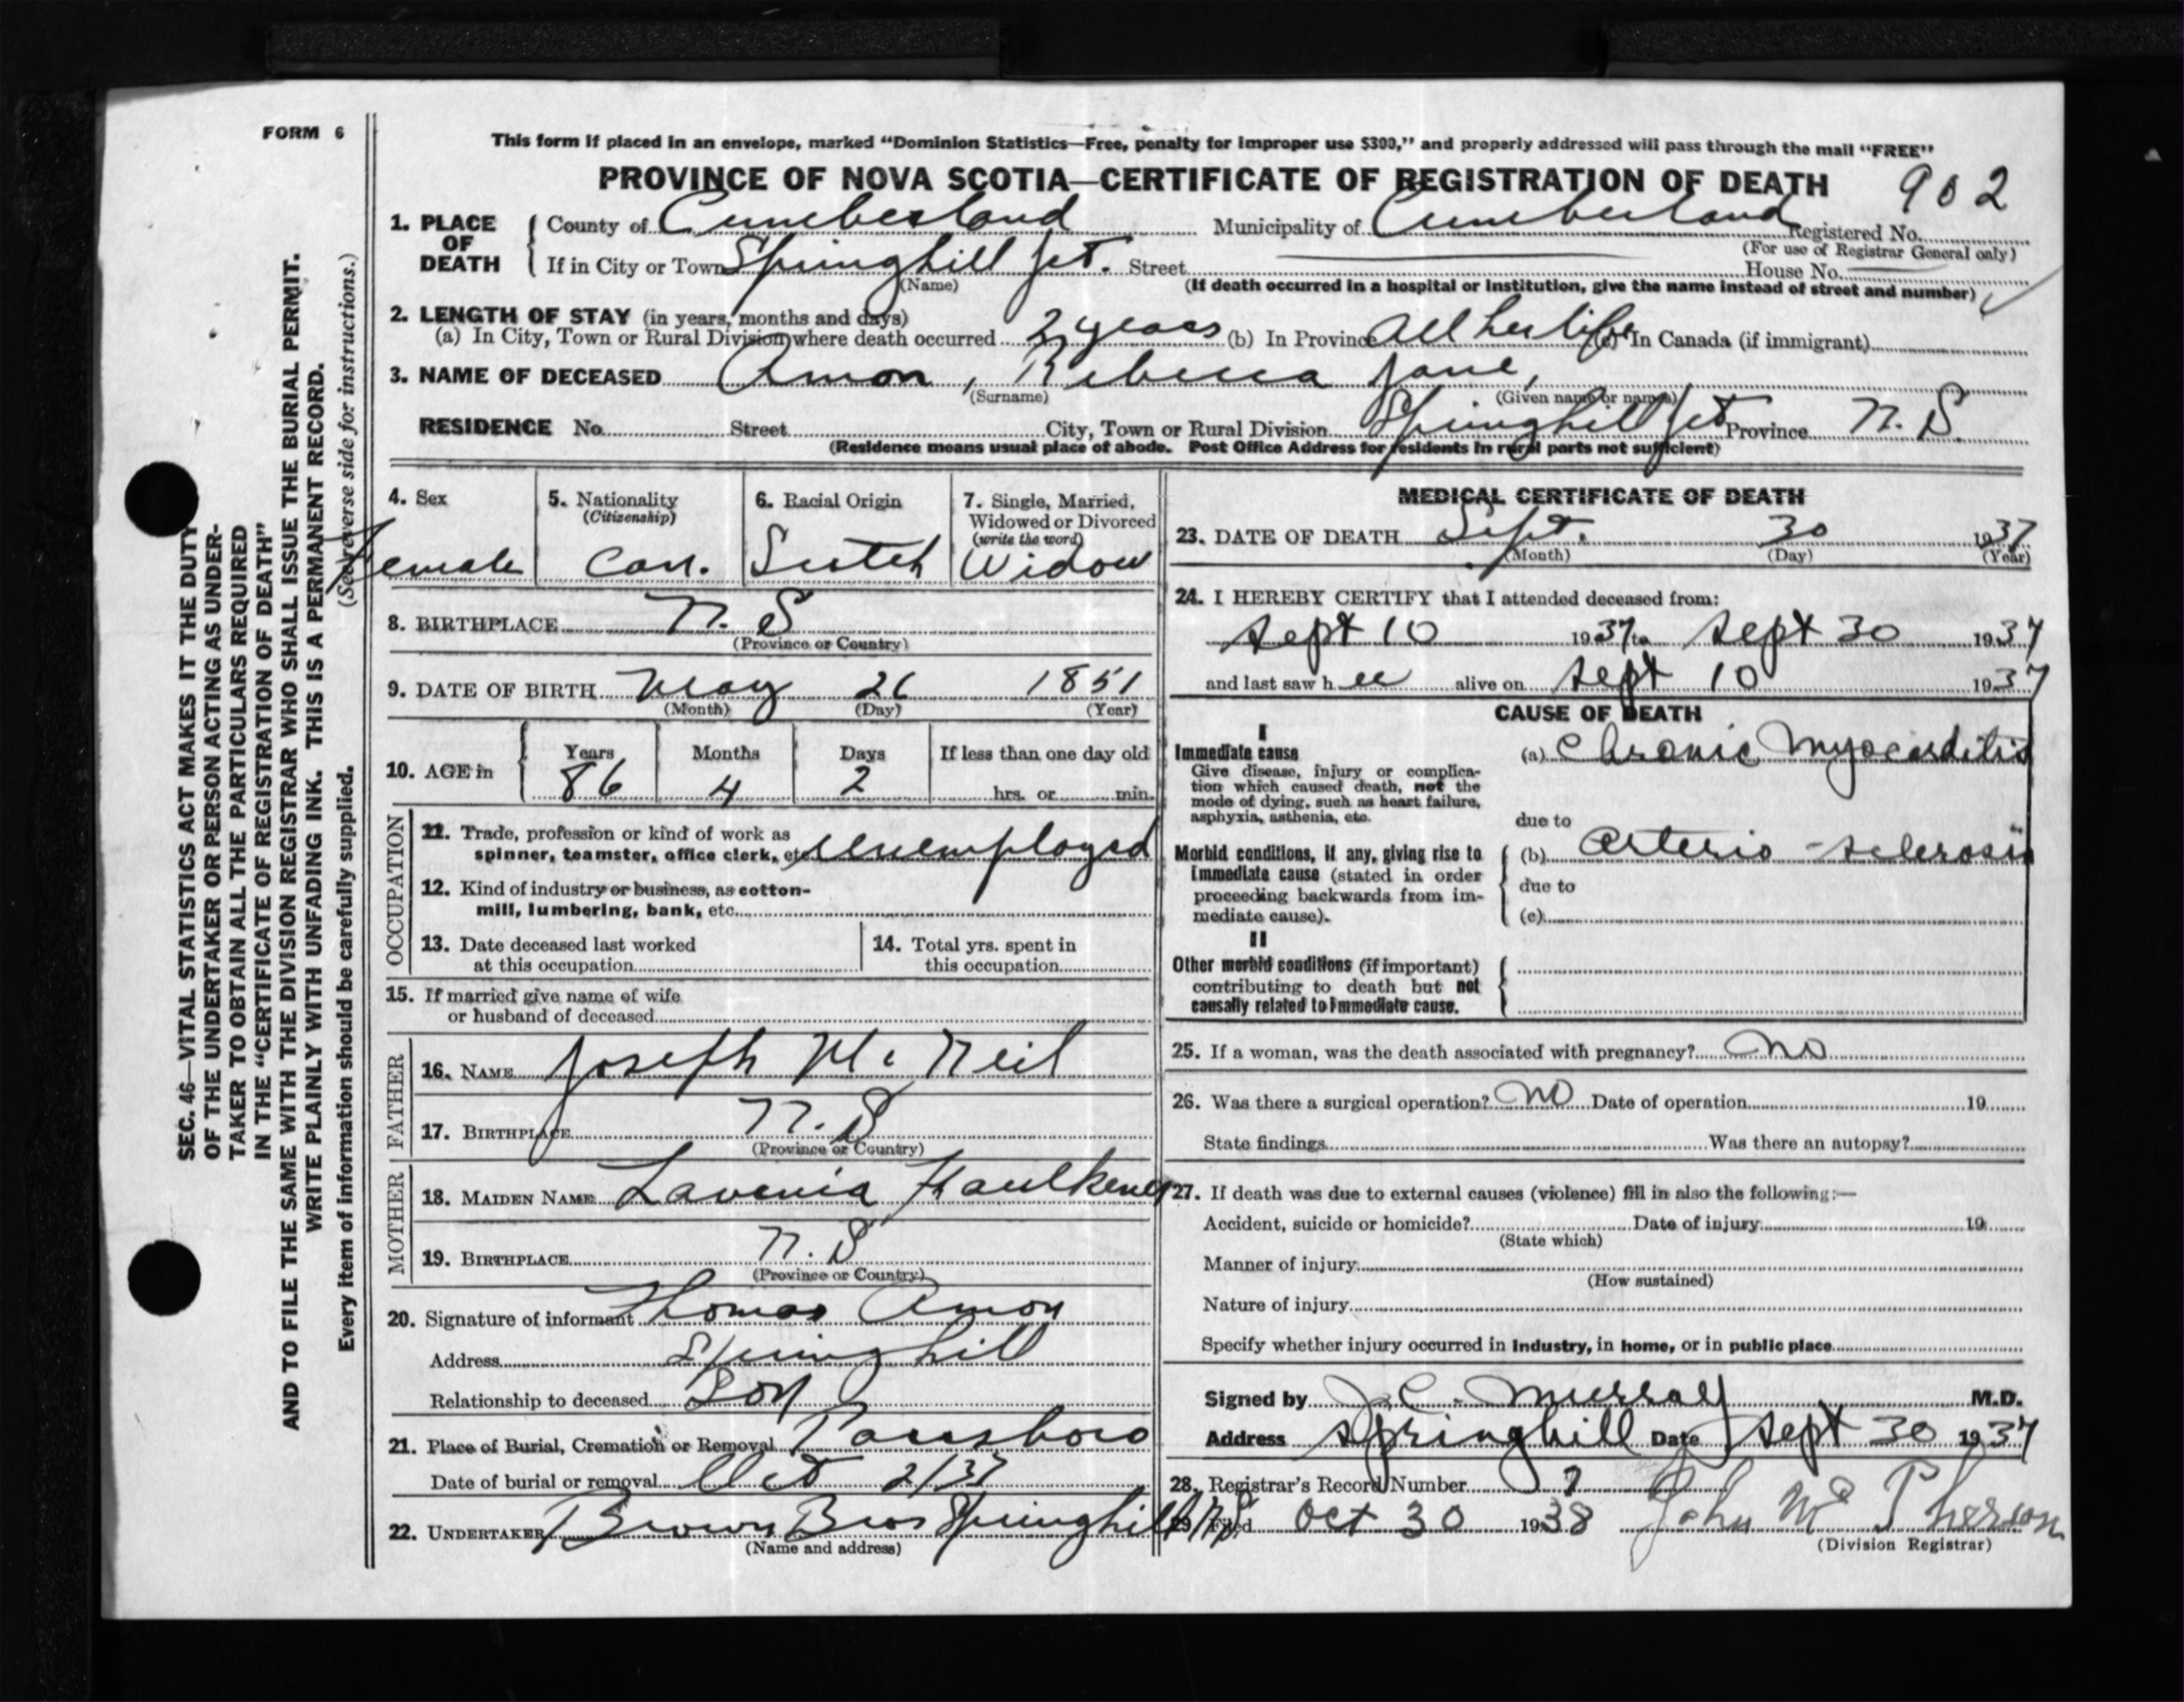 FORM 6
This form if placed in an envelope, marked "Dominion Statistics—Free, penalty for improper use $300," and properly addressed will pass through the mail "FREE"
PROVINCE OF NOVA SCOTIA—CERTIFICATE OF REGISTRATION OF DEATH 902
1. PLACE OF DEATH County of Cumberland Municipality of Cumberland Registered No.
(For use of Registrar General only)
If in City or Town Springhill Jct. Street House No.
(Name) (If death occurred in a hospital or institution, give the name instead of street and number)
2. LENGTH OF STAY (in years, months and days)
(a) In City, Town or Rural Division where death occurred 2 years (b) In Province All her life (c) In Canada (if immigrant)
3. NAME OF DECEASED Amon, Rebecca Jane,
(Surname) (Given name or names)
RESIDENCE No. Street City, Town or Rural Division Springhill Jct Province N. S.
(Residence means usual place of abode. Post Office Address for residents in rural parts not sufficient)
4. Sex 5. Nationality 6. Racial Origin 7. Single, Married,
(Citizenship) Widowed or Divorced
(write the word)
Female Can. Scotch Widow
8. BIRTHPLACE N. S
(Province or Country)
9. DATE OF BIRTH May 26 1851
(Month) (Day) (Year)
10. AGE in Years Months Days If less than one day old
86 4 2 hrs. or min.
OCCUPATION
11. Trade, profession or kind of work as
spinner, teamster, office clerk, etc. unemployed
12. Kind of industry or business, as cotton-
mill, lumbering, bank, etc.
13. Date deceased last worked
at this occupation
14. Total yrs. spent in
this occupation
15. If married give name of wife
or husband of deceased
FATHER
16. NAME Joseph Mc Neil
17. BIRTHPLACE N. S
(Province or Country)
MOTHER
18. MAIDEN NAME Lavenia Faulkener
19. BIRTHPLACE N. S
(Province or Country)
20. Signature of informant Thomas Amon
Address Springhill
Relationship to deceased Son
21. Place of Burial, Cremation or Removal Parrsboro
Date of burial or removal Oct 2/37
22. UNDERTAKER Brown Bros Springhill N S
(Name and address)
MEDICAL CERTIFICATE OF DEATH
23. DATE OF DEATH Sept. 30 1937
(Month) (Day) (Year)
24. I HEREBY CERTIFY that I attended deceased from:
Sept 10 1937 to Sept 30 1937
and last saw h er alive on Sept 10 1937
CAUSE OF DEATH
I
Immediate cause (a) Chronic Myocarditis
Give disease, injury or complica-
tion which caused death, not the
mode of dying, such as heart failure,
asphyxia, asthenia, etc.
due to
Morbid conditions, if any, giving rise to (b) Arterio-sclerosis
immediate cause (stated in order
proceeding backwards from im-
mediate cause).
due to
(c)
II
Other morbid conditions (if important)
contributing to death but not
causally related to immediate cause.
25. If a woman, was the death associated with pregnancy? No
26. Was there a surgical operation? No Date of operation 19
State findings Was there an autopsy?
27. If death was due to external causes (violence) fill in also the following:—
Accident, suicide or homicide? Date of injury 19
(State which)
Manner of injury
(How sustained)
Nature of injury
Specify whether injury occurred in industry, in home, or in public place
Signed by J. C. Murray M.D.
Address Springhill Date Sept 30 1937
28. Registrar's Record Number 7
29 Filed Oct 30 1938 John Mc Pherson
(Division Registrar)
SEC. 46—VITAL STATISTICS ACT MAKES IT THE DUTY
OF THE UNDERTAKER OR PERSON ACTING AS UNDER-
TAKER TO OBTAIN ALL THE PARTICULARS REQUIRED
IN THE "CERTIFICATE OF REGISTRATION OF DEATH"
AND TO FILE THE SAME WITH THE DIVISION REGISTRAR WHO SHALL ISSUE THE BURIAL PERMIT.
WRITE PLAINLY WITH UNFADING INK. THIS IS A PERMANENT RECORD.
Every item of information should be carefully supplied. (See reverse side for instructions.)